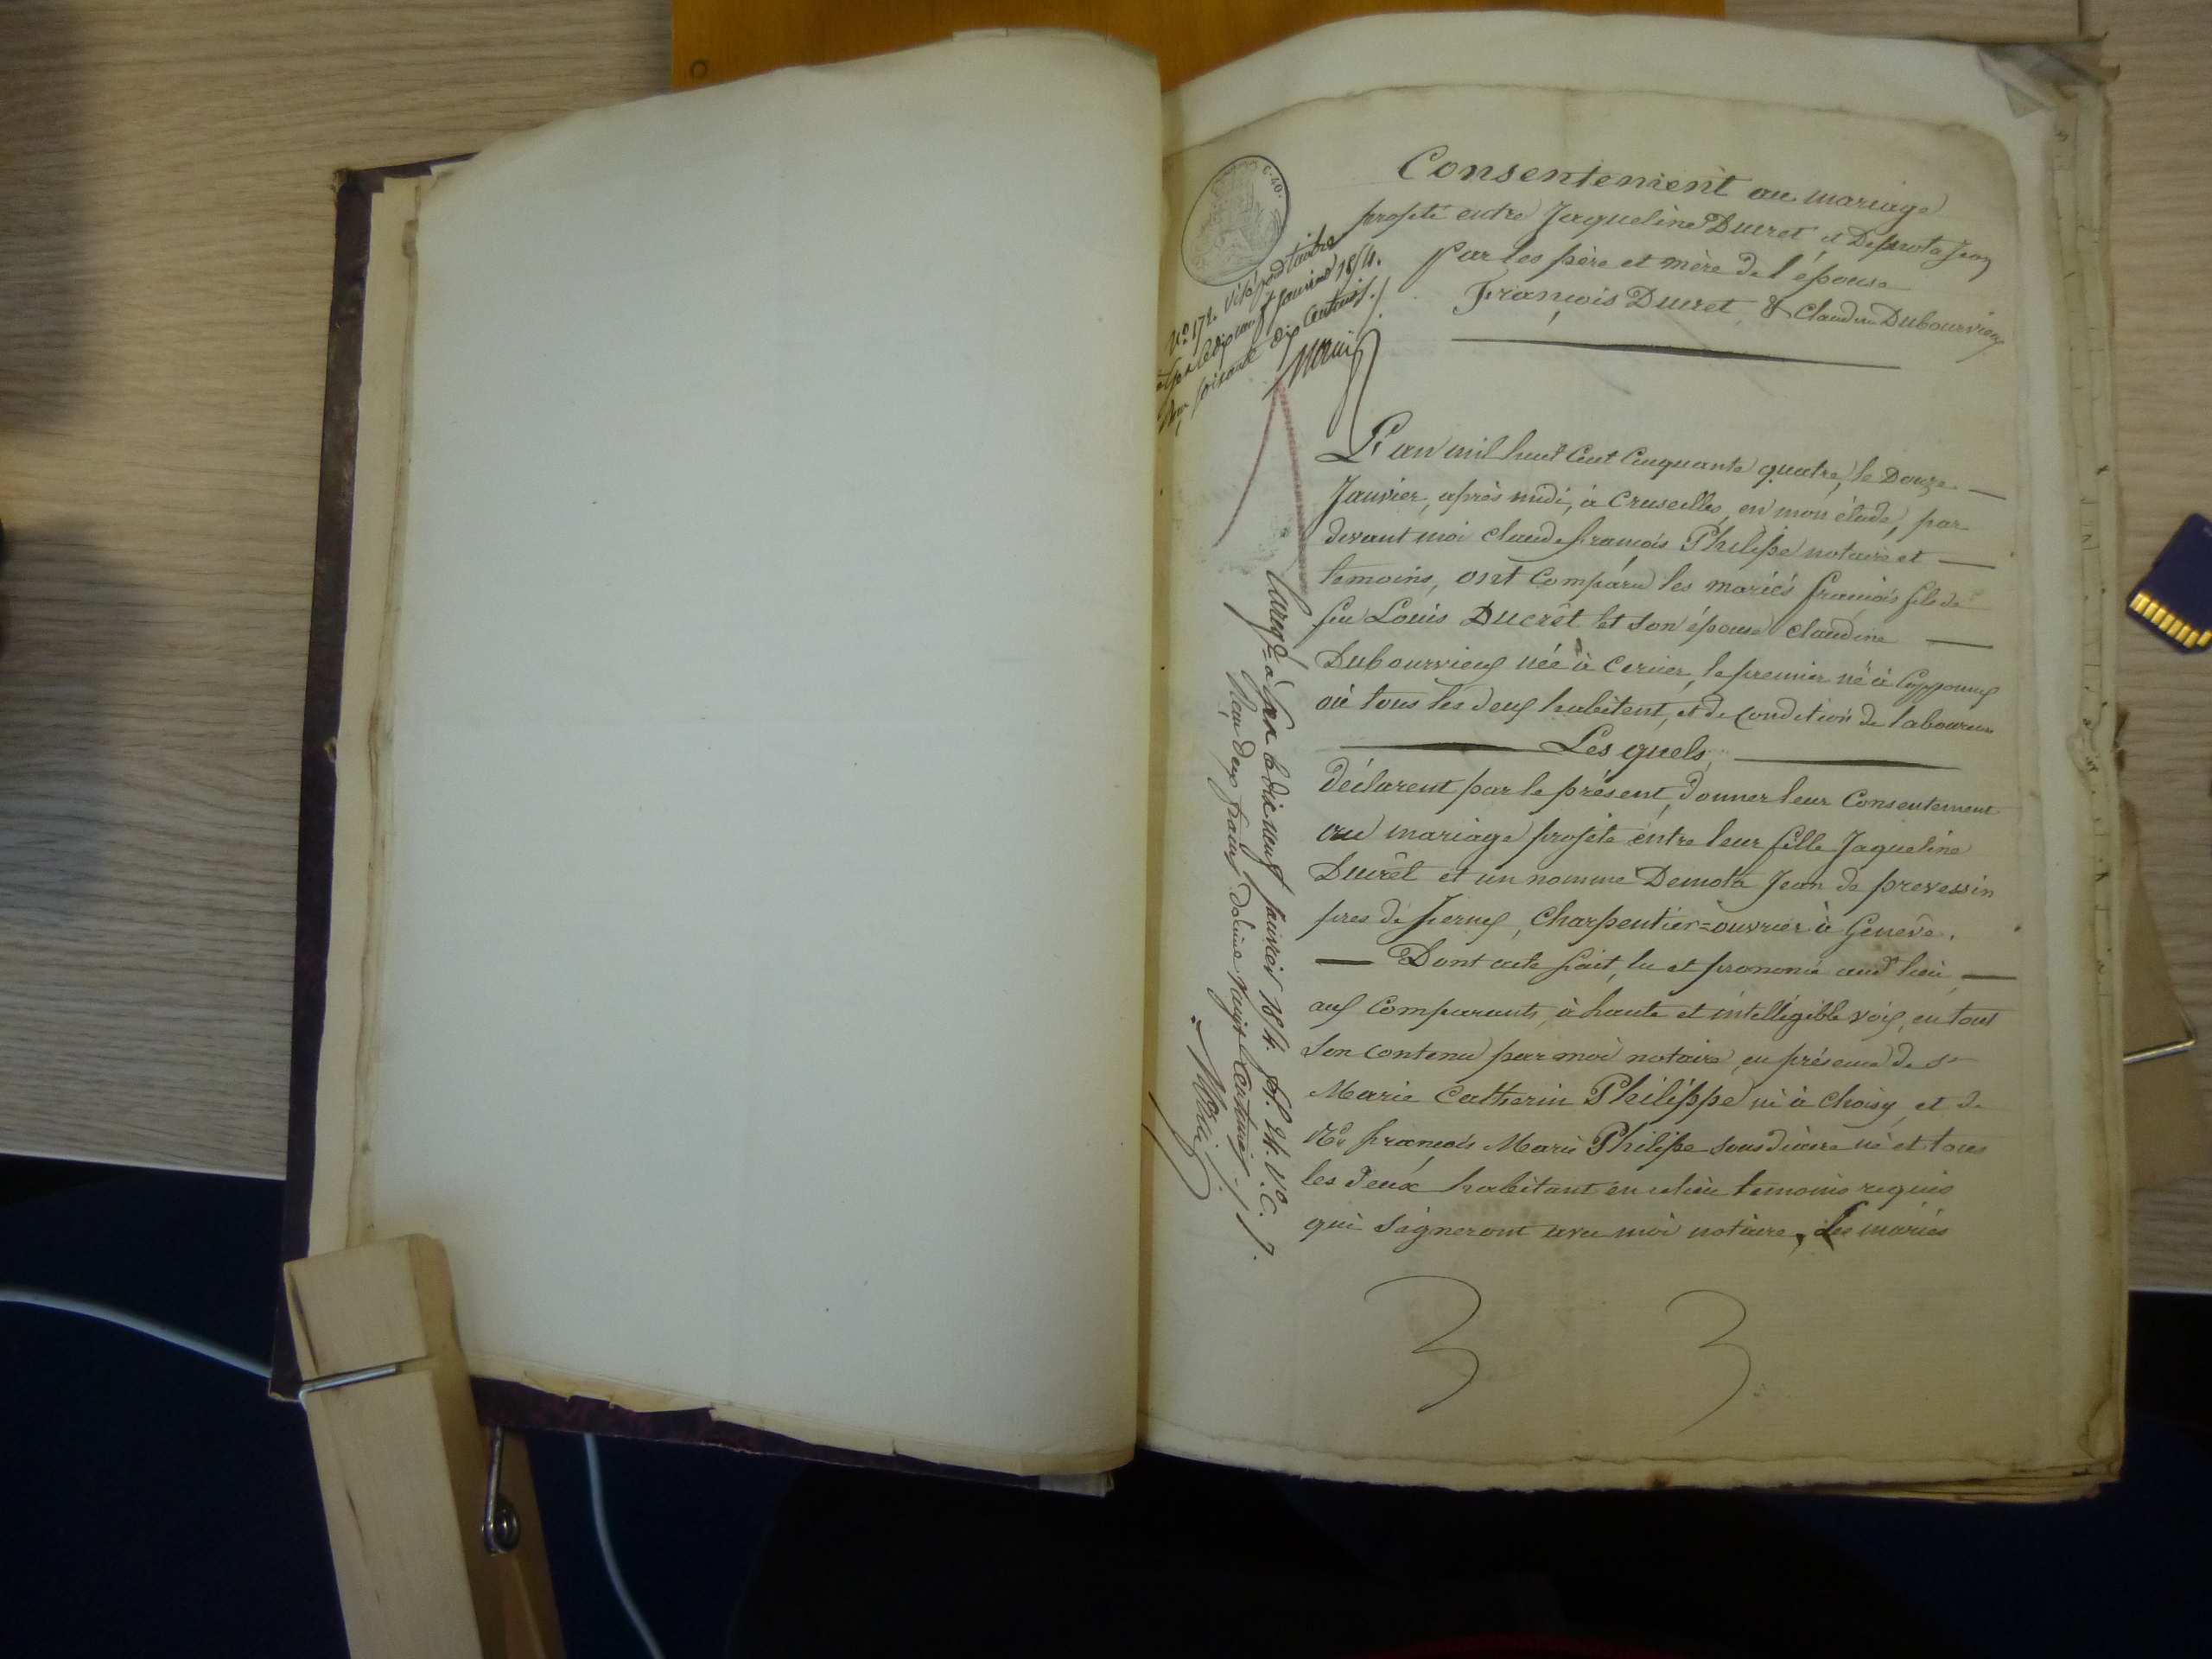 C. 40.
Consentement au mariage
projeté entre Jaqueline Ducret et Demota Jean
Par les père et mère de l'épouse
François Ducret & Claudine Dubourvieux
N° 172. Visé pour timbre
le dix neuf janvier 1854.
soixante dix centimes./.
L'an mil huit cent cinquante quatre, le Douze
Janvier, après midi, à Cruseilles, en mon étude, par
devant moi Claude françois Philippe notaire et
temoins, ont comparu les mariés françois fils de
feu Louis Ducrêt et son épouse Claudine
Dubourvieux née à Cernex, le premier né à Copponex
où tous les deux habitent, et de condition de laboureurs
Les quels,
déclarent par le présent, donner leur consentement
au mariage projeté entre leur fille Jaqueline
Ducrêt et un nommé Demota Jean de prevessin
pres de Fernex, Charpentier=ouvrier à Genève.
Dont acte fait, lu et prononcé aud.t lieu
aux comparants, à haute et intelligible voix, en tout
son contenu par moi notaire, en présence de Sr
Marie Catherin Philippe né à Choisy, et de
Rd françois Marie Philippe sousdiacre né et tous
les deux habitant en ce lieu temoins requis
qui signeront avec moi notaire, Les mariés
le dix neuf janvier 1854. f° 24. V° C. 7.
Reçu deux francs décime vingt centimes./.